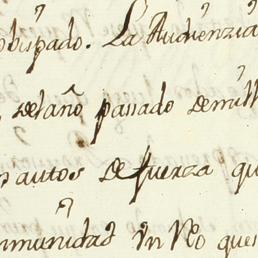 obispado. La Audienzia
del año passado de mill
autos de fuerza qu
inmunidad in No que